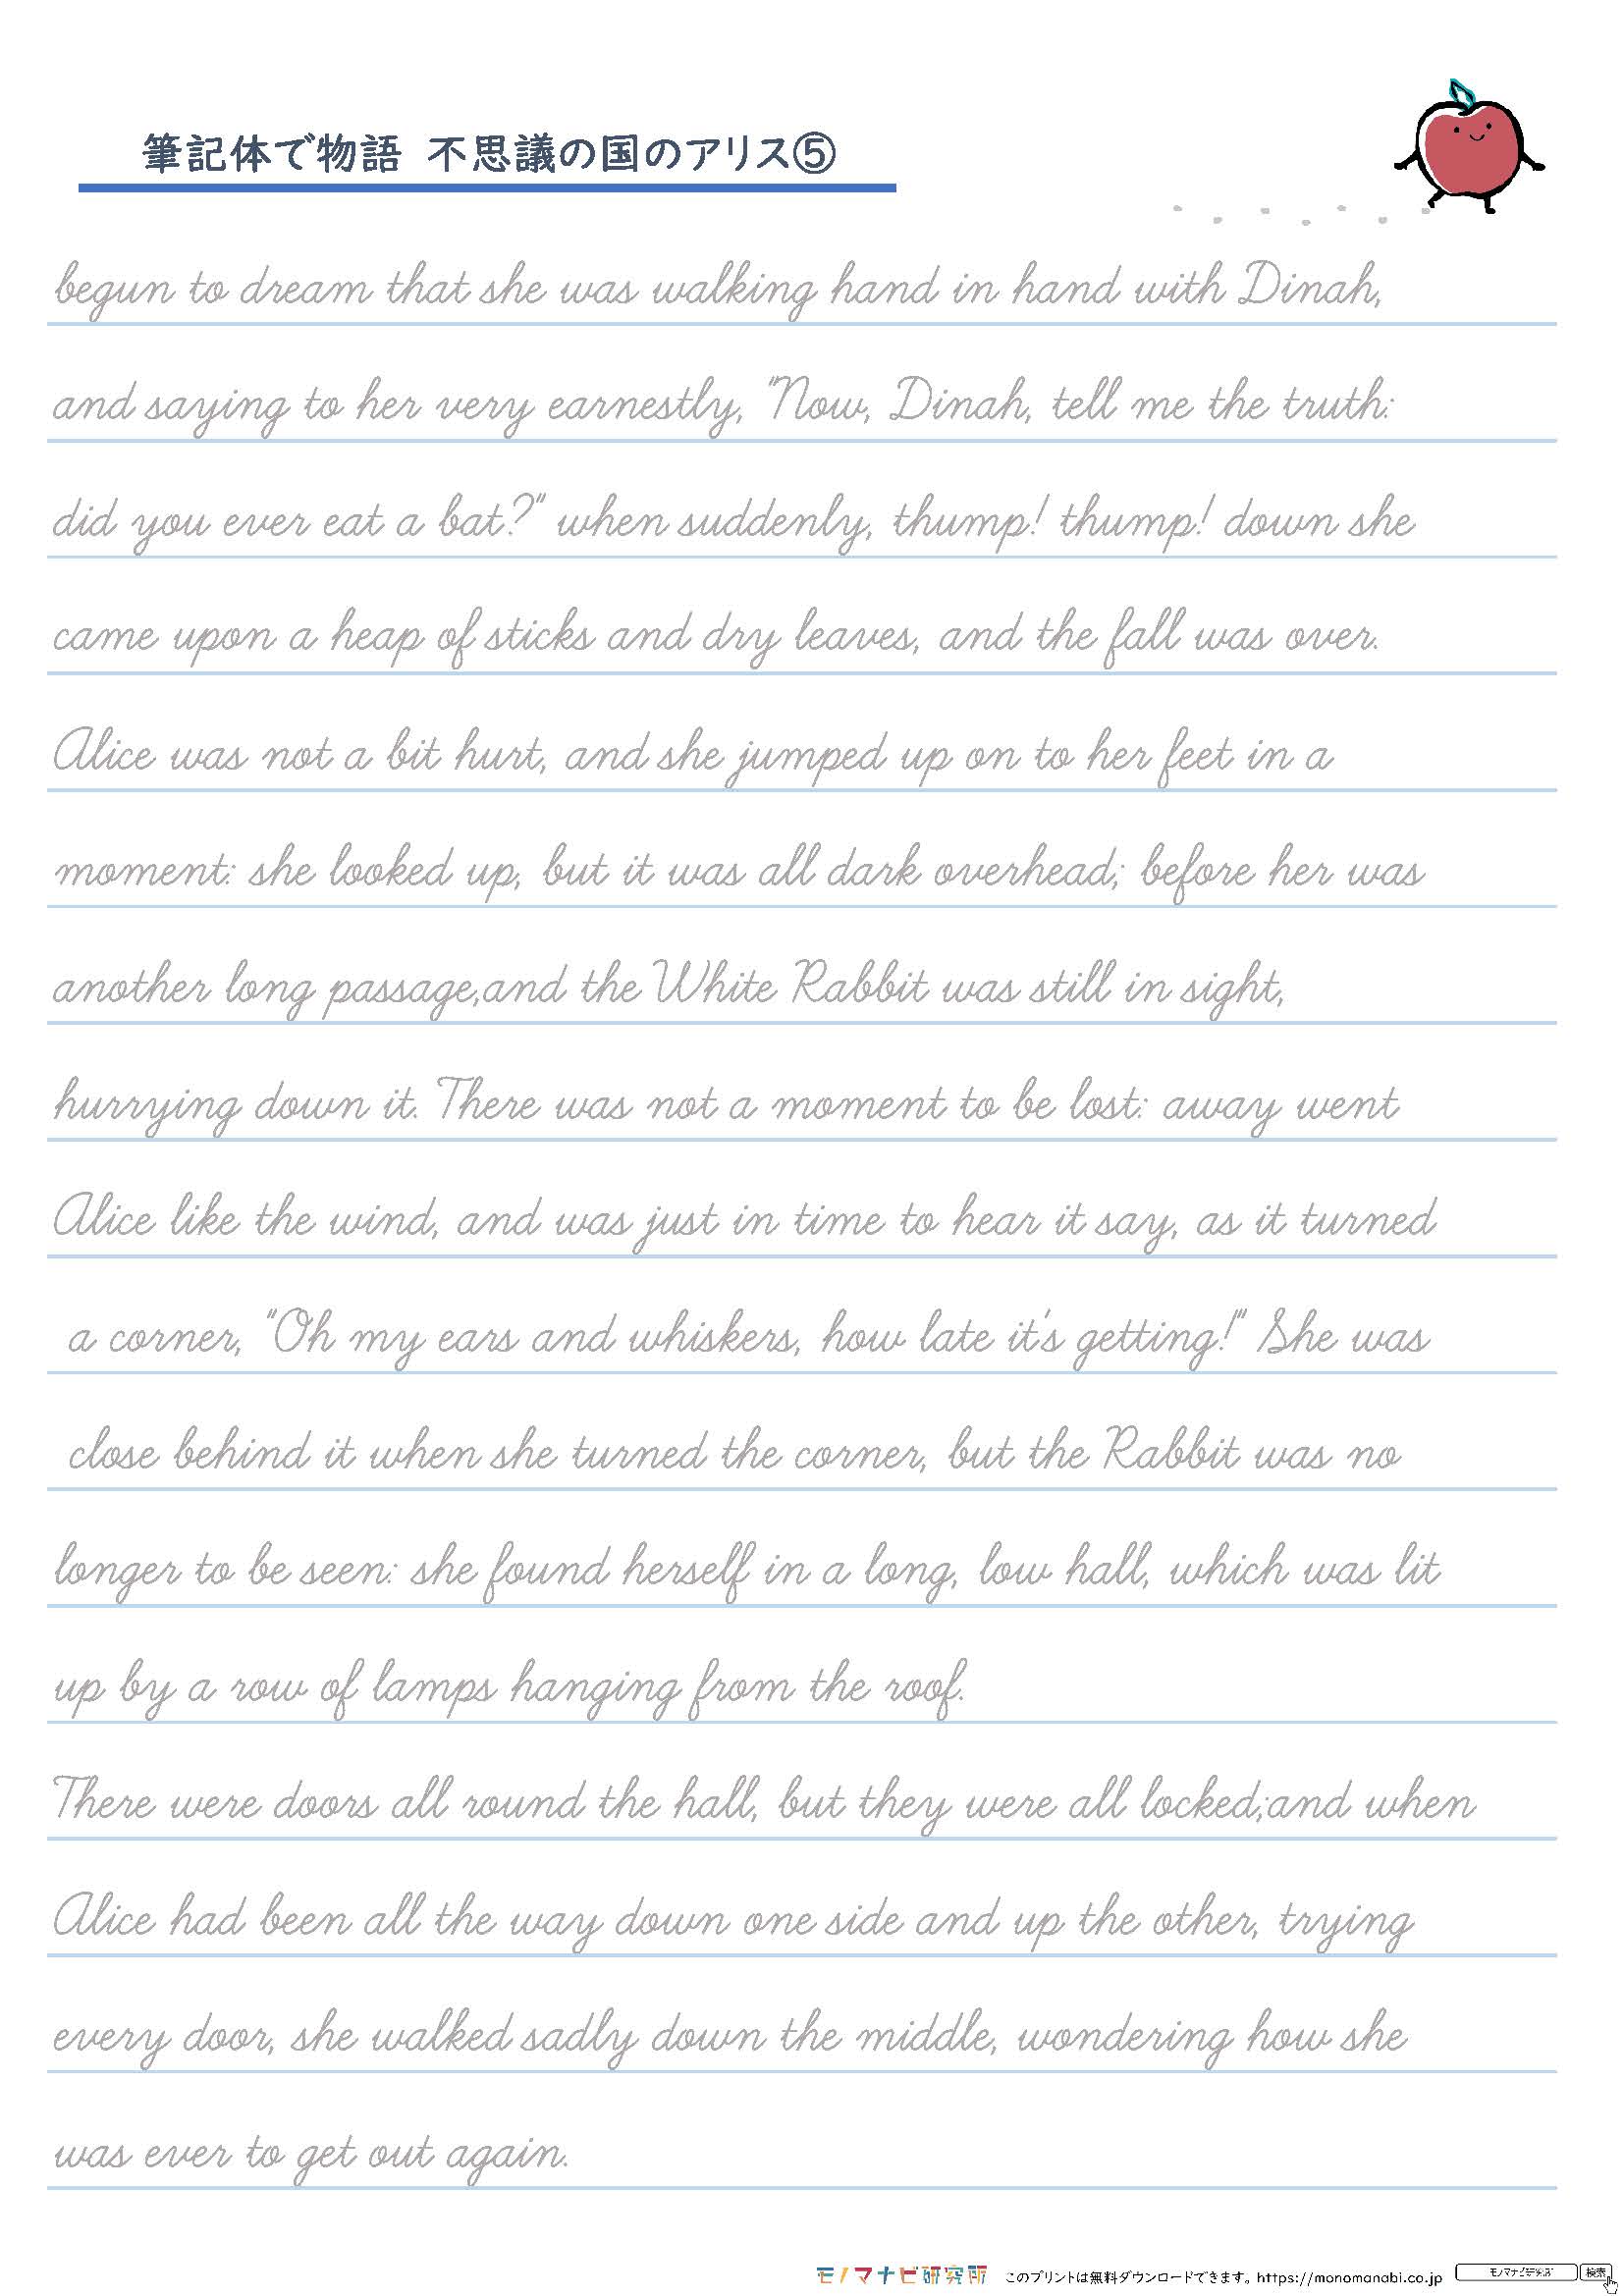 筆記体で物語 不思議の国のアリス⑤
begun to dream that she was walking hand in hand with Dinah,
and saying to her very earnestly, "Now, Dinah, tell me the truth:
did you ever eat a bat?" when suddenly, thump! thump! down she
came upon a heap of sticks and dry leaves, and the fall was over.
Alice was not a bit hurt, and she jumped up on to her feet in a
moment: she looked up, but it was all dark overhead; before her was
another long passage,and the White Rabbit was still in sight,
hurrying down it. There was not a moment to be lost: away went
Alice like the wind, and was just in time to hear it say, as it turned
a corner, "Oh my ears and whiskers, how late it's getting!" She was
close behind it when she turned the corner, but the Rabbit was no
longer to be seen: she found herself in a long, low hall, which was lit
up by a row of lamps hanging from the roof.
There were doors all round the hall, but they were all locked;and when
Alice had been all the way down one side and up the other, trying
every door, she walked sadly down the middle, wondering how she
was ever to get out again.
モノマナビ研究所 このプリントは無料ダウンロードできます。https://monomanabi.co.jp モノマナビ研究所 検索